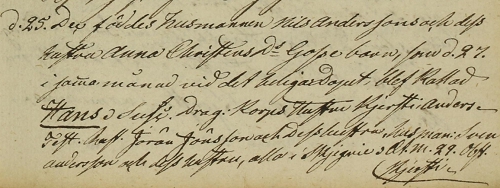 d. 25. Dec föddes Husmannen Nils Anderssons och dess
hustru Anna Christens Dr Gosse barn, som d. 27.
i samma månad vid det heliga dopet blef kallad
Hans; Susc. Drag. Korps hustru Kjersti Anders-
Test. Husm. Jöran Jönsson och dess hustru, Husman Sven
Andersson och dess hustru, alla i d. 29. Oct.
Kjersti